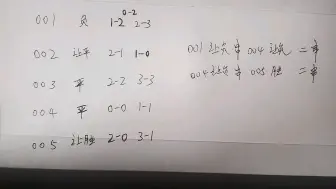 0-2
001 负 1-2 2-3
002 让平 2-1 1-0
003 平 2-2 3-3
004 平 0-0 1-1
005 让胜 2-0 3-1
001 让负 串 004 让负 二串
004 让负 串 005 胜 二串